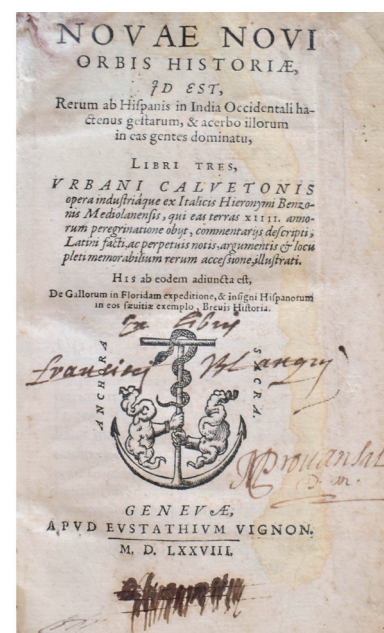 NOVAE NOVI
ORBIS HISTORIÆ,
ID EST,
Rerum ab Hiſpanis in India Occidentali ha-
ctenus geſtarum, & acerbo illorum
in eas gentes dominatu,
LIBRI TRES,
VRBANI CALVETONIS
opera induſtriáque ex Italicis Hieronymi Benzo-
nis Mediolanenſis, qui eas terras XIIII. anno-
rum peregrinatione obijt, commentarijs deſcripti,
Latini facti, ac perpetuis notis, argumentis & locu
pleti memorabilium rerum acceſſione, illuſtrati.
HIS ab eodem adiuncta eſt,
De Gallorum in Floridam expeditione, & inſigni Hiſpanorum
in eos ſæuitiæ exemplo, Breuis Hiſtoria.
Ex Libris
ANCHORA
SACRA.
GENEVÆ,
APVD EVSTATHIVM VIGNON.
M. D. LXXVIII.